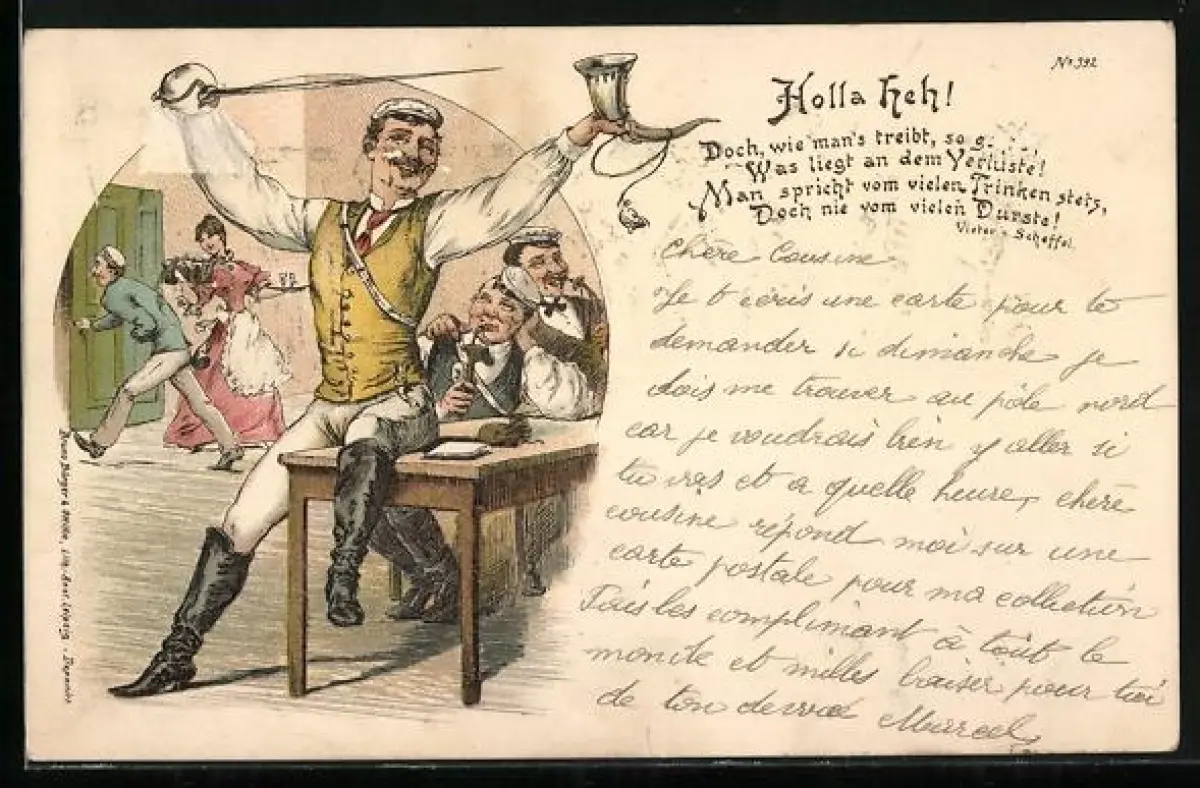 No. 392
Holla heh!
Doch, wie man's treibt, so g. . . ,
Was liegt an dem Verluste!
Man spricht vom vielen Trinken stets,
Doch nie vom vielen Durste!
Victor v. Scheffel.
chère Cousine
Je t écris une carte pour te
demander si dimanche je
dois me trouver au pôle nord
car je voudrais bien y aller si
tu vas et a quelle heure, chère
cousine répond moi sur une
carte postale pour ma collection
Fais les complimant à tout le
monde et milles baiser pour toi
de ton Marcel
Lith. Anst. Leipzig